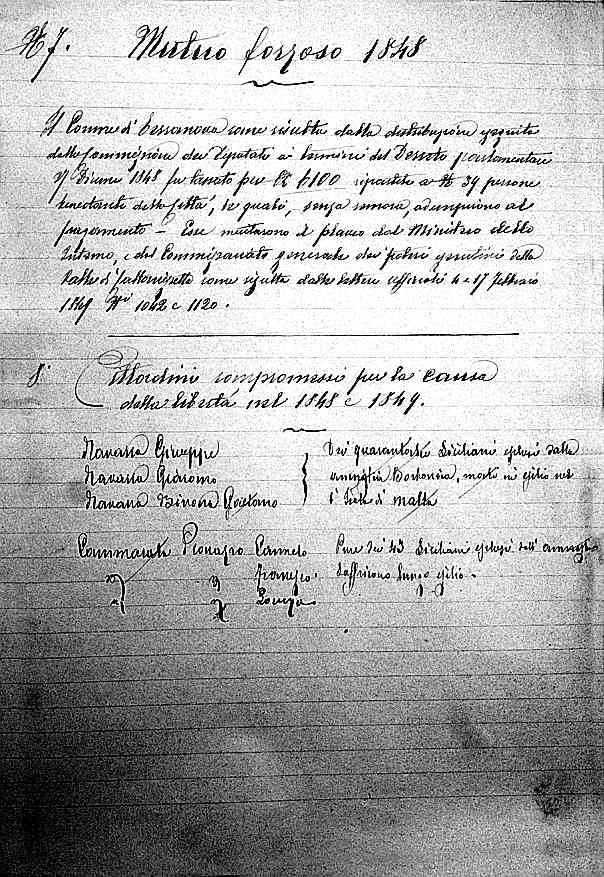 N 7. Mutuo forzoso 1848
Il Comune di Terranova come risulta dalla distribuzione eseguita
dalla Commissione dei Deputati ai termini del Decreto parlamentare
Dicembre 1848 fu tassato per 6100 ripartite a N 39 persone
benestanti della città, le quali, senza remora, adempirono al
pagamento – Esse meritarono il plauso dal Ministero dello
Interno, e dal Commissariato generale dei poteri esecutivi della
Valle di Caltanissetta come risulta dalle lettere ufficiali 4 e 17 Febbraio
1849 Ni 1042 e 1120.
8° Cittadini compromessi per la causa
della libertà nel 1848 e 1849.
Navarra Giuseppe } Dei quarantatre Siciliani esclusi dalla
Navarra Giacomo amnistia Borbonica, morti in esilio nel
Navarra Gaetano l'Isola di Malta
Cammarata Carmelo Pure dei 43 Siciliani esclusi dall'amnistia
" " Francesco soffrirono lungo esilio.
" "